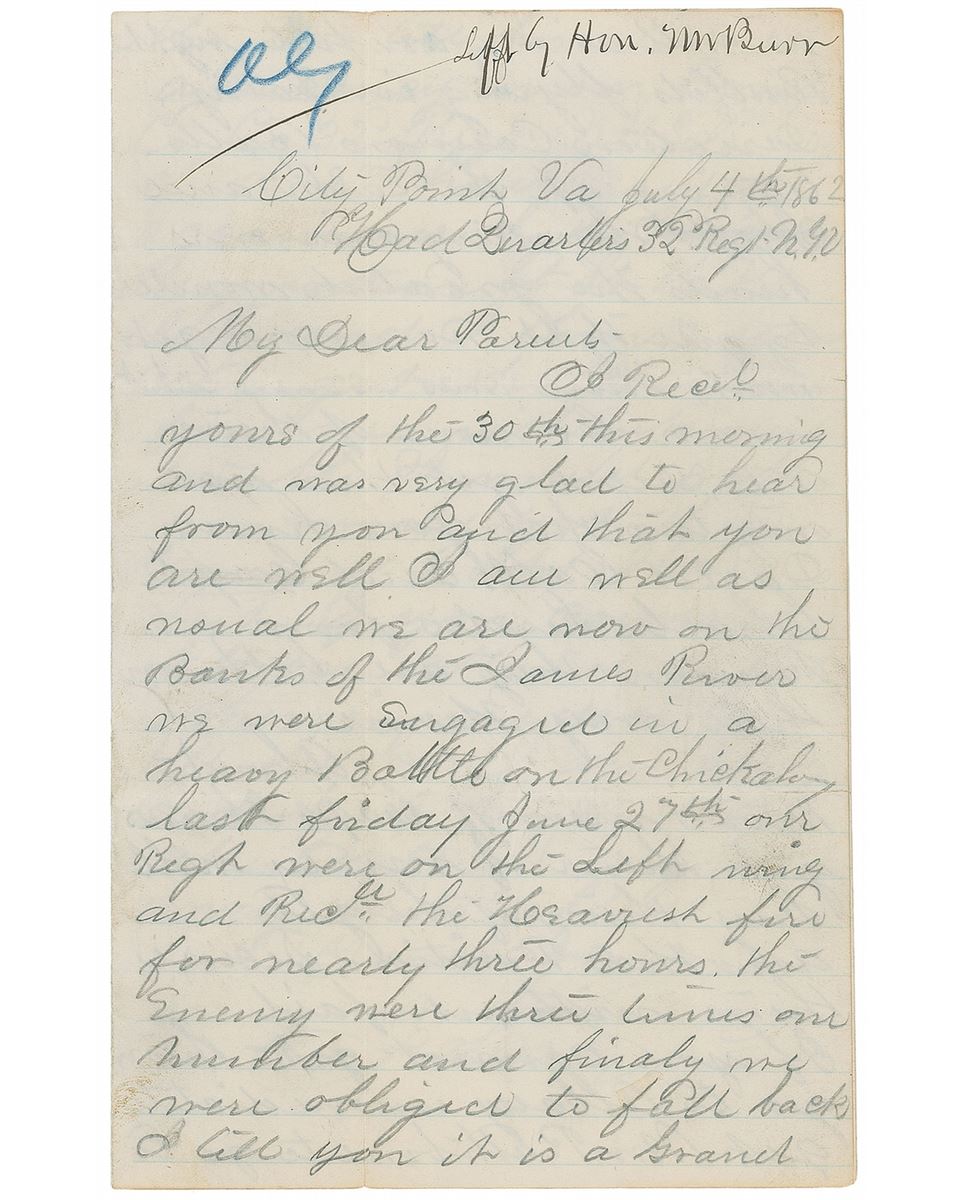 Left by Hon. Mr Burr
City Point Va July 4th 1862
Head Quarters 32 Regt N.Y.V
My Dear Parents
I Recd
yours of the 30th this morning
and was very glad to hear
from you and that you
are well I am well as
usual we are now on the
Banks of the James River
we were Engaged in a
heavy Battle on the Chickahoy
last friday June 27th our
Regt were on the Left wing
and Recd the Heaviest fire
for nearly three hours. the
Enemy were three times our
number and finaly we
were obliged to fall back
I tell you it is a Grand